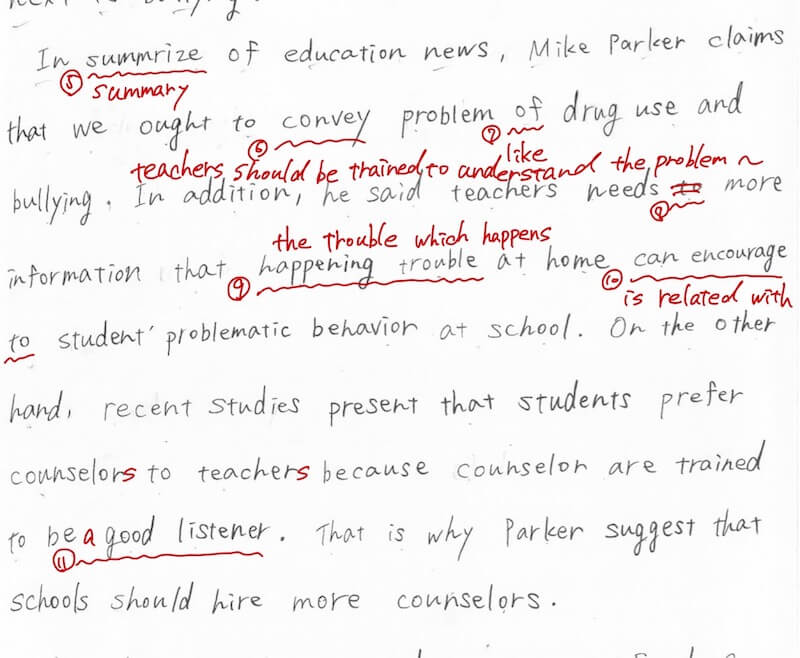 In summrize of education news, Mike Parker claims
⑤ summary
that we ought to convey problem of drug use and
⑥ ⑦ like
teachers should be trained to understand the problem ~
bullying. In addition, he said teachers needs to more
⑧
the trouble which happens
information that happening trouble at home can encourage
⑨ ⑩ is related with
to student' problematic behavior at school. On the other
hand, recent studies present that students prefer
counselors to teachers because counselor are trained
to be a good listener. That is why Parker suggest that
⑪
schools should hire more counselors.